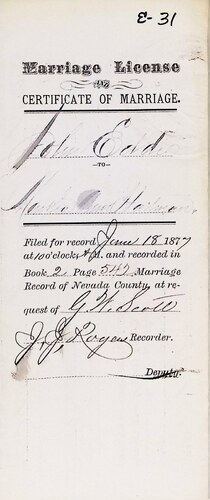 E-31
Marriage License
AND
CERTIFICATE OF MARRIAGE.
John
—TO—
Filed for record June 18 1877
at 10 o'clock, A.M. and recorded in
Book 2 Page 542 Marriage
Record of Nevada County, at re-
quest of G. W. Scott
J. J. Rogers Recorder.
Deputy.